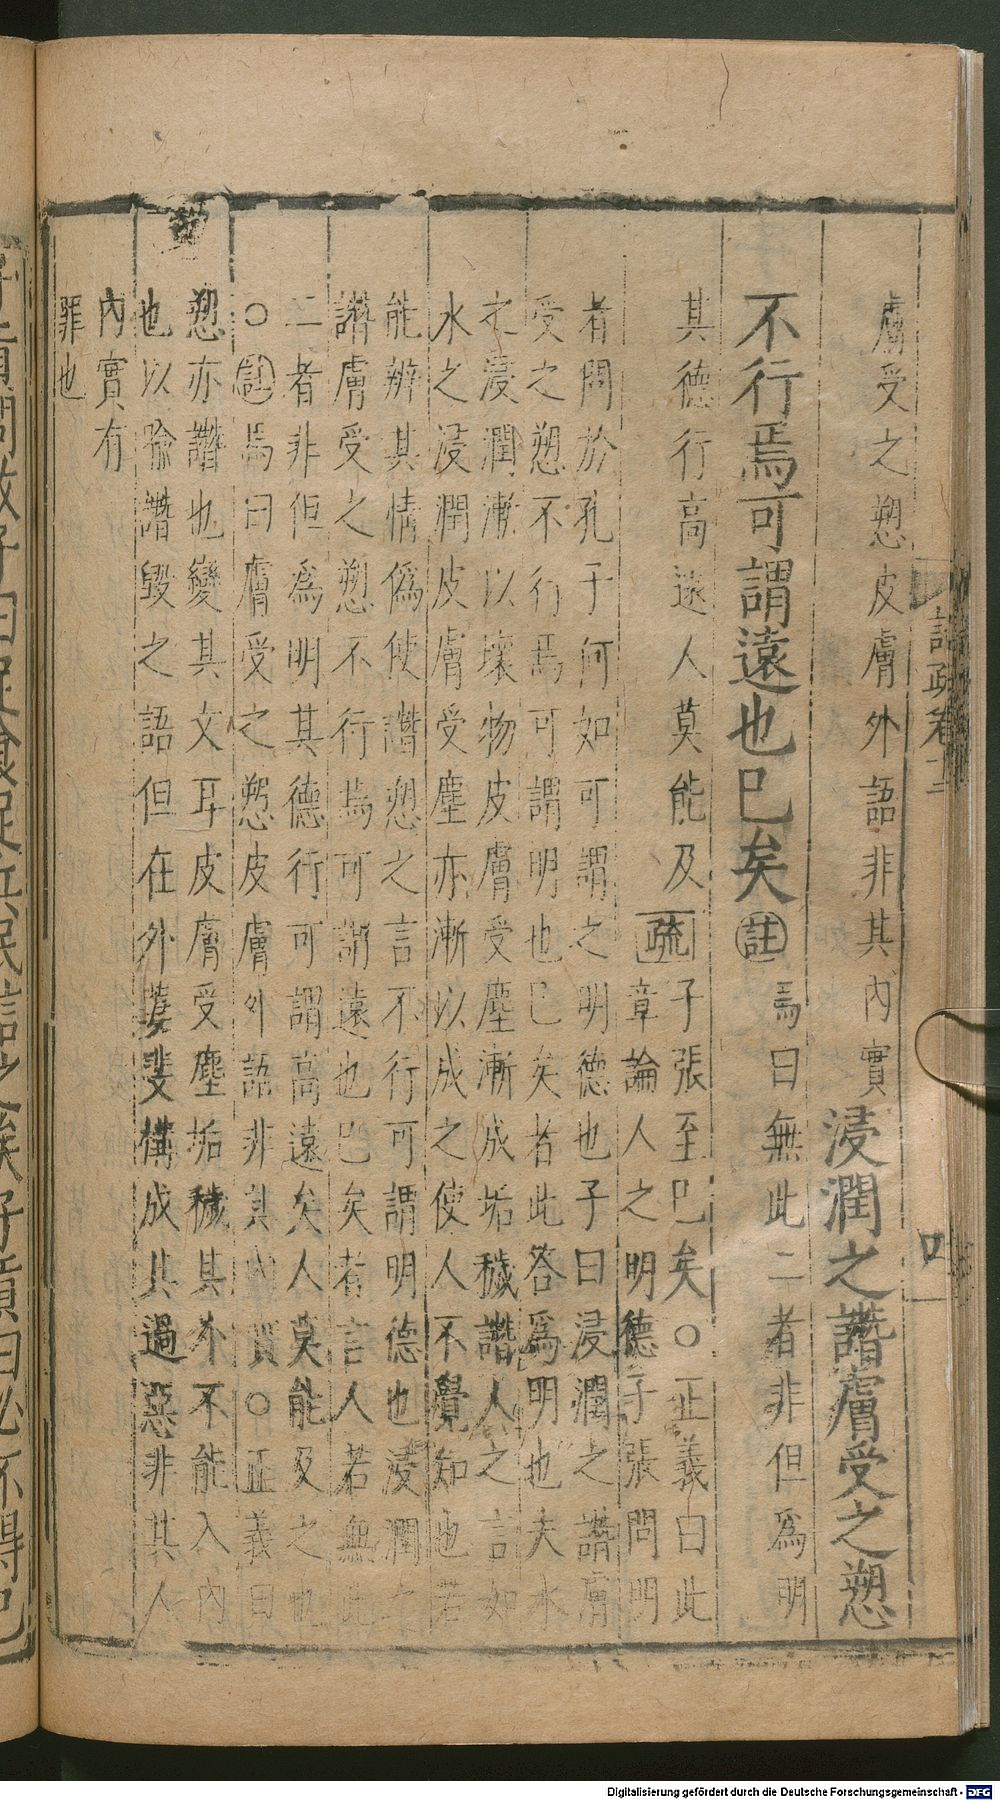 膚受之愬皮膚外語非其內實 浸潤之譖膚受之愬
不行焉可謂遠也已矣 註 馬曰無此二者非但爲明
其德行高遠人莫能及 疏 子張至已矣○正義曰此
章論人之明德子張問明
者問於孔子何如可謂之明德也子曰浸潤之譖膚
受之愬不行焉可謂明也已矣者此答爲明也夫水
之浸潤漸以壞物皮膚受塵漸成垢穢譖人之言如
水之浸潤皮膚受塵亦漸以成之使人不覺知也若
能辨其情僞使譖愬之言不行可謂明德也浸潤之
譖膚受之愬不行焉可謂遠也已矣者言人若無此
二者非但爲明其德行可謂高遠矣人莫能及之也
○註馬曰膚受之愬皮膚外語非其內實○正義曰
愬亦譖也變其文耳皮膚受塵垢穢其外不能入內
也以喻譖毀之語但在外萋斐構成其過惡非其人
內實有
罪也
子貢問政子曰足食足兵民信之矣子貢曰必不得已
Digitalisierung gefördert durch die Deutsche Forschungsgemeinschaft - DFG